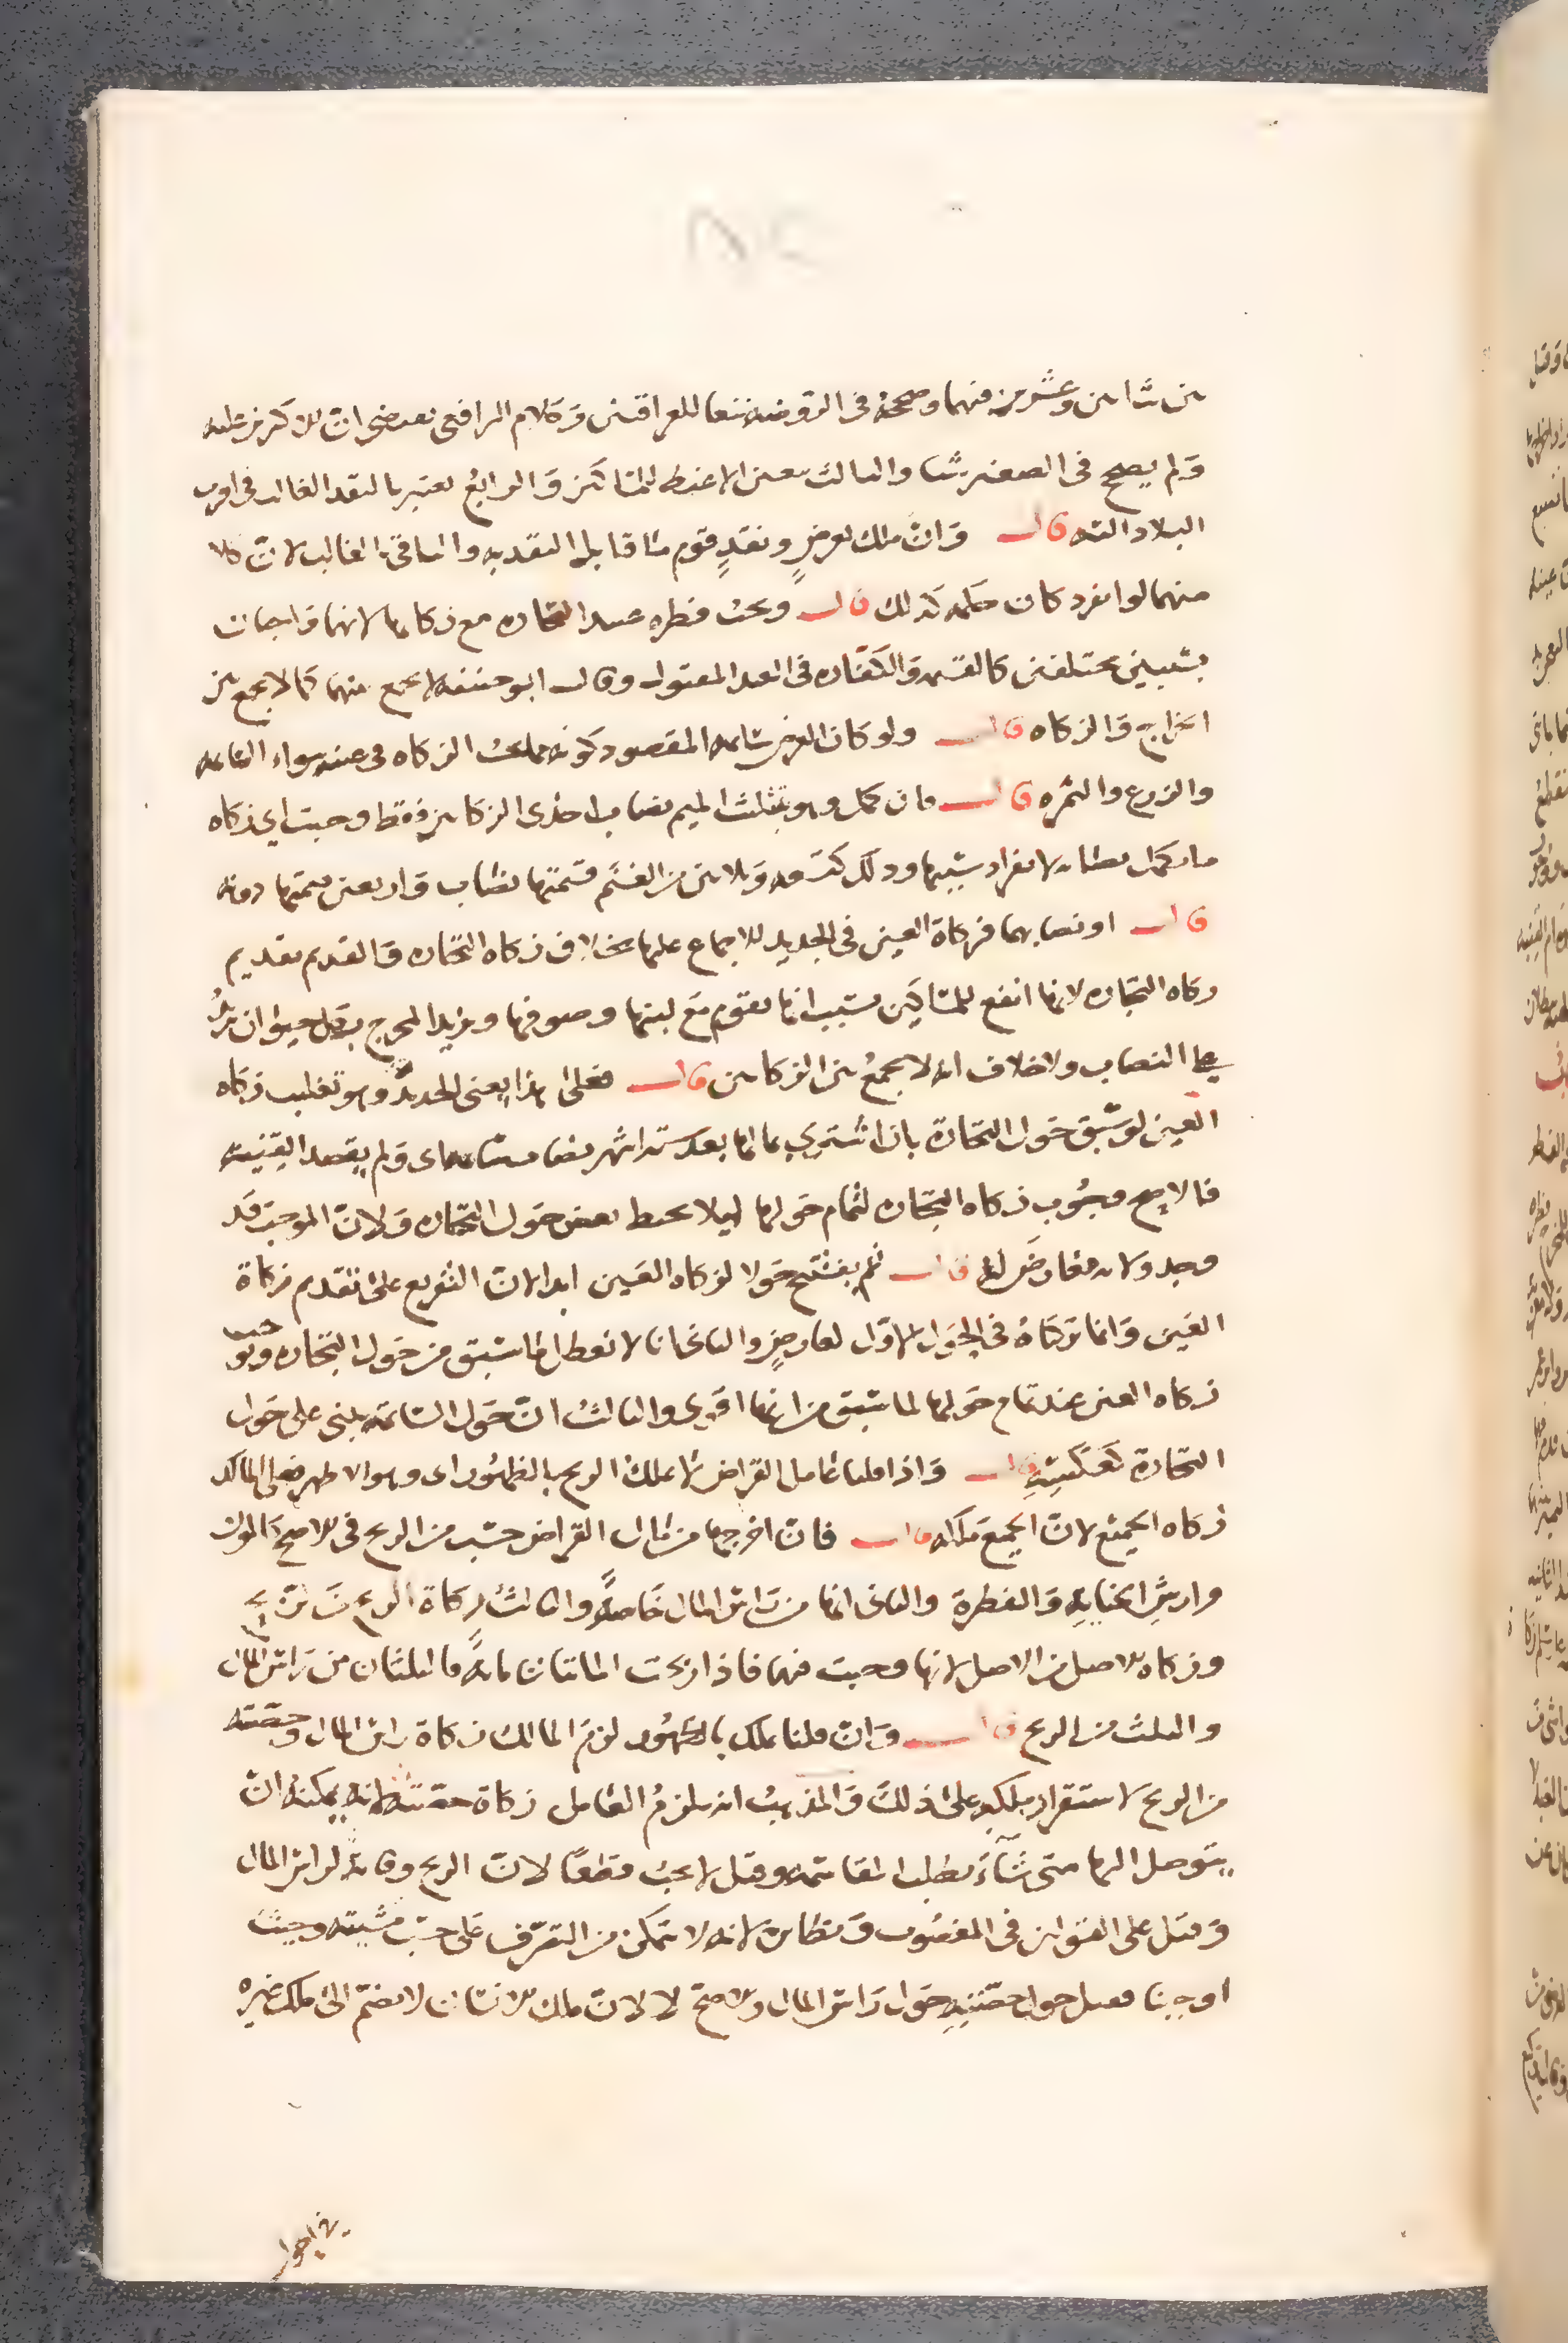 بين شاتين وعشرين منهما وصححه في الروضة تبعا للعراقيين وكلام الرافعي يقتضي ان الاكثرين عليه
ولم يصحح في الصغير شيا والثالث يتعين الاغبط للمساكين والرابع يعتبر بالنقد الغالب في اقرب
البلاد اليه قال وان ملك بعرض ونقد قوم ما قابل النقد به والباقي بالغالب لان كلا
منهما لو انفرد كان حكمه كذلك قال وتجب فطرة عبيد التجارة مع زكاتها لانهما واجبان
بسببين مختلفين كالقيمة والكفارة في العبد المقتول وقال ابو حنيفة لا يجمع بينهما كما لا يجمع بين
الخراج والزكاه قال ولو كان العرض سايمة المقصود كونه مما تجب الزكاه في عينه سواء السايمه
والزرع والثمره قال فان كمل وهو بتثليث الميم نصاب احدى الزكاتين فقط وجبت اي زكاه
ما كمل نصابه لانفراد سببها وذلك كتسعه وثلاثين من الغنم قيمتها نصاب واربعين قيمتها دونه
قال او نصابهما فزكاة العين في الجديد للاجماع عليها بخلاف زكاه التجاره والقديم تقديم
زكاه التجاره لانها انفع للمساكين بسبب انها تقوم مع لبنها وصوفها ويزيد المخرج بكل حيوان يزيد
على النصاب ولا خلاف انه لا يجمع بين الزكاتين قال فعلى هذا يعني الجديد وهو تغليب زكاه
العين لو سبق حول التجارة بان اشترى بمالها بعد ستة اشهر نصاب سايمه اي ولم يقصد القنية
فالاصح وجوب زكاه التجاره لتمام حولها ليلا يحبط بعض حول التجاره ولان الموجب قد
وجد ولا معارض له قال ثم يفتتح حولا لزكاه العين ابدا لان التفريع على تقدم زكاة
العين وانما تركناه في الحول الاول لعارض والثاني انا لا نعطل ما سبق من حول التجاره وتجب
زكاه العين عند تمام حولها لما سبق من انها اقوى والثالث ان حول السايمة يبنى على حول
التجارة كعكسه قال واذا قلنا عامل القراض لا يملك الربح بالظهور اي وهو الاظهر فعلى المالك
زكاه الجميع لان الجميع ملكه قال فان اخرجها من مال القراض حسب من الربح في الاصح كالمؤن
وارش الجناية والفطرة والثاني انها من راس المال خاصة والثالث زكاة الربح من الربح
وزكاه الاصل من الاصل لانها وجبت فيهما فاذا ربحت المائتان مائة فالثلثان من راس المال
والثلث من الربح قال وان قلنا يملك بالظهور لزم المالك زكاة راس المال وحصته
من الربح لاستقرار ملكه على ذلك والمذهب انه يلزم العامل زكاة حصته لانه يمكنه ان
يتوصل اليها متى شاء بطلب المقاسمة وقيل لا تجب قطعا لان الربح وقاية لراس المال
وقيل على القولين في المغصوب ونظايره لانه لا يتمكن من التصرف على حسب مشيته وحيث
اوجبنا فقيل حول حصته حول راس المال والاصح لا لان ملك الانسان لا يضم الى ملك غيره
في الحول